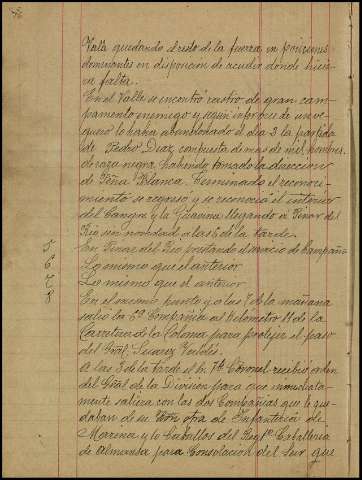 Valle quedando el resto de la fuerza en posiciones
dominantes en disposicion de acudir donde hicie-
ra falta.
En el Valle se encontró rastro de gran cam-
pamento enemigo y segun informes de un ve-
guero lo habia abandonado el dia 3 la partida
de Pedro Diaz, compuesta de mas de mil hombres
de raza negra, habiendo tomado la direccion
de Peña Blanca. Terminado el reconoci-
miento se regresó y se reconoció el interior
del Cangre y la Guavina llegando á Pinar del
Rio sin novedad á las 6 de la tarde.
En Pinar del Rio prestando el servicio de Campaña
Lo mismo que el anterior
Lo mismo que el anterior
En el mismo punto y a las 7 de la mañana
salió la Compañia al Kilometro 11 de la
Carretera de la Coloma para protejer el paso
del Gral. Suarez Valdés.
A las 3 de la tarde el Sr. Tte. Coronel recibió orden
del Gral de la Division para que inmediata-
mente saliera con las dos Compañias que le que-
daban de su Bon otra de Infanteria de
Marina y 40 Caballos del Regto. Caballeria
de Almansa para Consolacion del Sur que